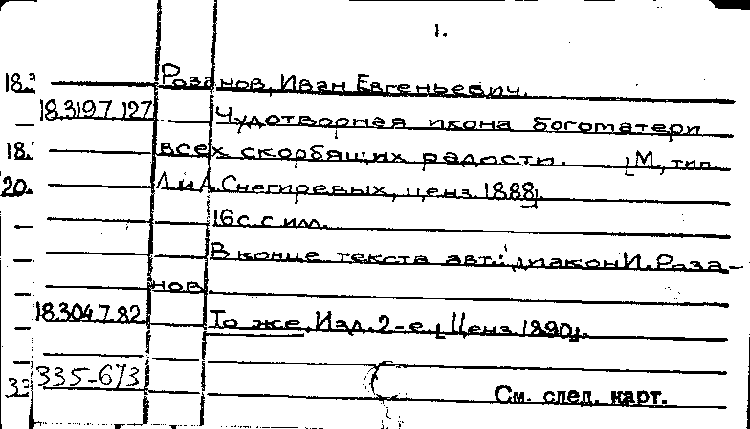 1.
Розанов, Иван Евгеньевич.
18.319.7.127 Чудотворная икона богоматери
всех скорбящих радости. [М., тип.
Л. и А. Снегиревых, ценз. 1888].
16 с. с илл.
В конце текста авт.: диакон И. Роза-
нов.
18.304.7.82 То же. Изд. 2-е. [Ценз. 1890].
335-673
См. след. карт.